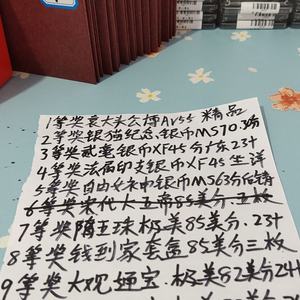 1等奖袁大头公博AU55 精品
2等奖银猫纪念银币MS70.3分
3等奖贰毫银币XF45分广东23+
4等奖法属印支银币XF45坐洋
5等奖自由女神银币MS63分后铸
6等奖宋代大五帝85美分.五枚
7等奖隋五珠极美85美分.23+
8等奖钱到家套盒85美分三枚
9等奖大观通宝.极美82美分24+